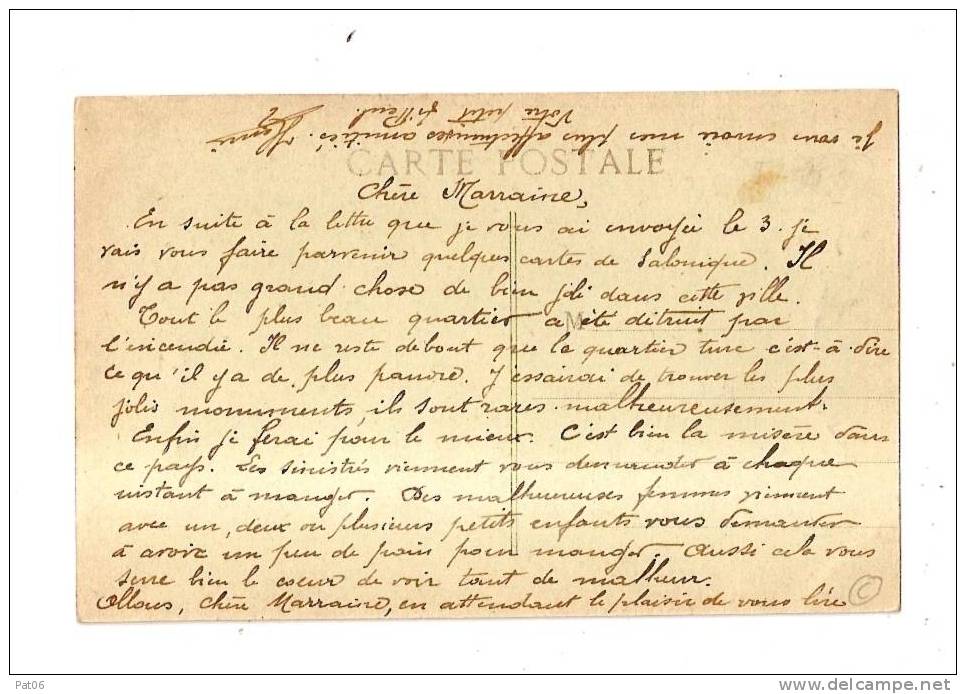 CARTE POSTALE
Chère Marraine,
En suite à la lettre que je vous ai envoyée le 3. je
vais vous faire parvenir quelques cartes de Salonique. Il
n'y a pas grand chose de bien joli dans cette ville.
Tout le plus beau quartier a été détruit par
l'incendie. Il ne reste debout que le quartier turc c'est-à-dire
ce qu'il y a de plus pauvre. J'essairai de trouver les plus
jolis monuments, ils sont rares malheureusement.
Enfin je ferai pour le mieux. C'est bien la misère dans
ce pays. Les sinistrés viennent vous demander à chaque
instant à manger. Des malheureuses femmes viennent
avec un, deux ou plusieurs petits enfants vous demander
à avoir un peu de pain pour manger. Aussi cela vous
serre bien le coeur de voir tant de malheur.
Allons, chère Marraine, en attendant le plaisir de vous lire
je vous envoie mes plus affectueuses amitiés.
Votre petit filleul.
Pat06
Delcampe.net